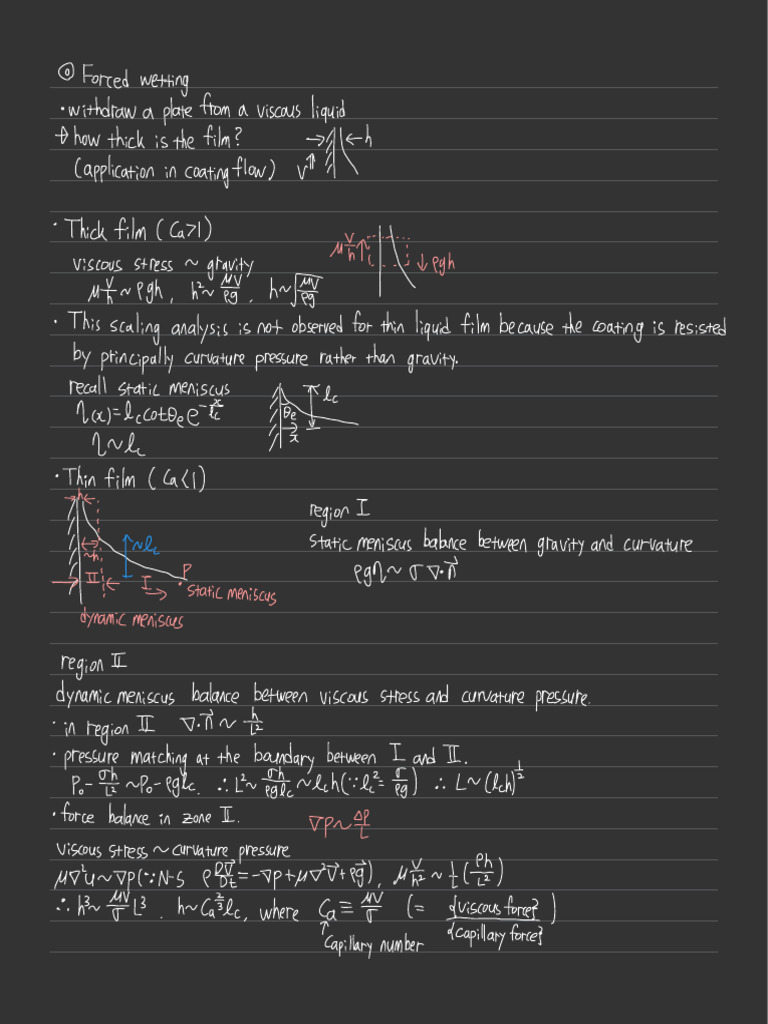 ⊙ Forced wetting
· withdraw a plate from a viscous liquid
→ how thick is the film?
→ ← h
(application in coating flow) V
· Thick film (Ca>1)
viscous stress ~ gravity
μ V/h ~ ρgh, h² ~ μV/ρg, h ~ √(μV/ρg)
μ V/h ↑ ↓ ρgh
· This scaling analysis is not observed for thin liquid film because the coating is resisted
by principally curvature pressure rather than gravity.
recall static meniscus
η(x) = l_c cotθ_e e^(-x/l_c)
η ~ l_c
θ_e l_c
x
· Thin film (Ca<1)
h
~h ~l_c
II I P
static meniscus
dynamic meniscus
region I
static meniscus balance between gravity and curvature
ρgη ~ σ ∇·n⃗
region II
dynamic meniscus balance between viscous stress and curvature pressure.
· in region II ∇·n⃗ ~ h/L²
· pressure matching at the boundary between I and II.
P₀ - σh/L² ~ P₀ - ρgl_c. ∴ L² ~ σh/ρgl_c ~ l_c h (∵ l_c² = σ/ρg) ∴ L ~ (l_c h)^(1/2)
· force balance in zone II. ∇P ~ ΔP/L
viscous stress ~ curvature pressure
μ∇²u ~ ∇p (∵ N-S ρ DV⃗/Dt = -∇p + μ∇²V⃗ + ρg⃗), μ V/h² ~ 1/L (σh/L²)
∴ h³ ~ μV/σ L³. h ~ Ca^(2/3) l_c, where Ca ≡ μV/σ (= {viscous force}/{capillary force})
↑
capillary number